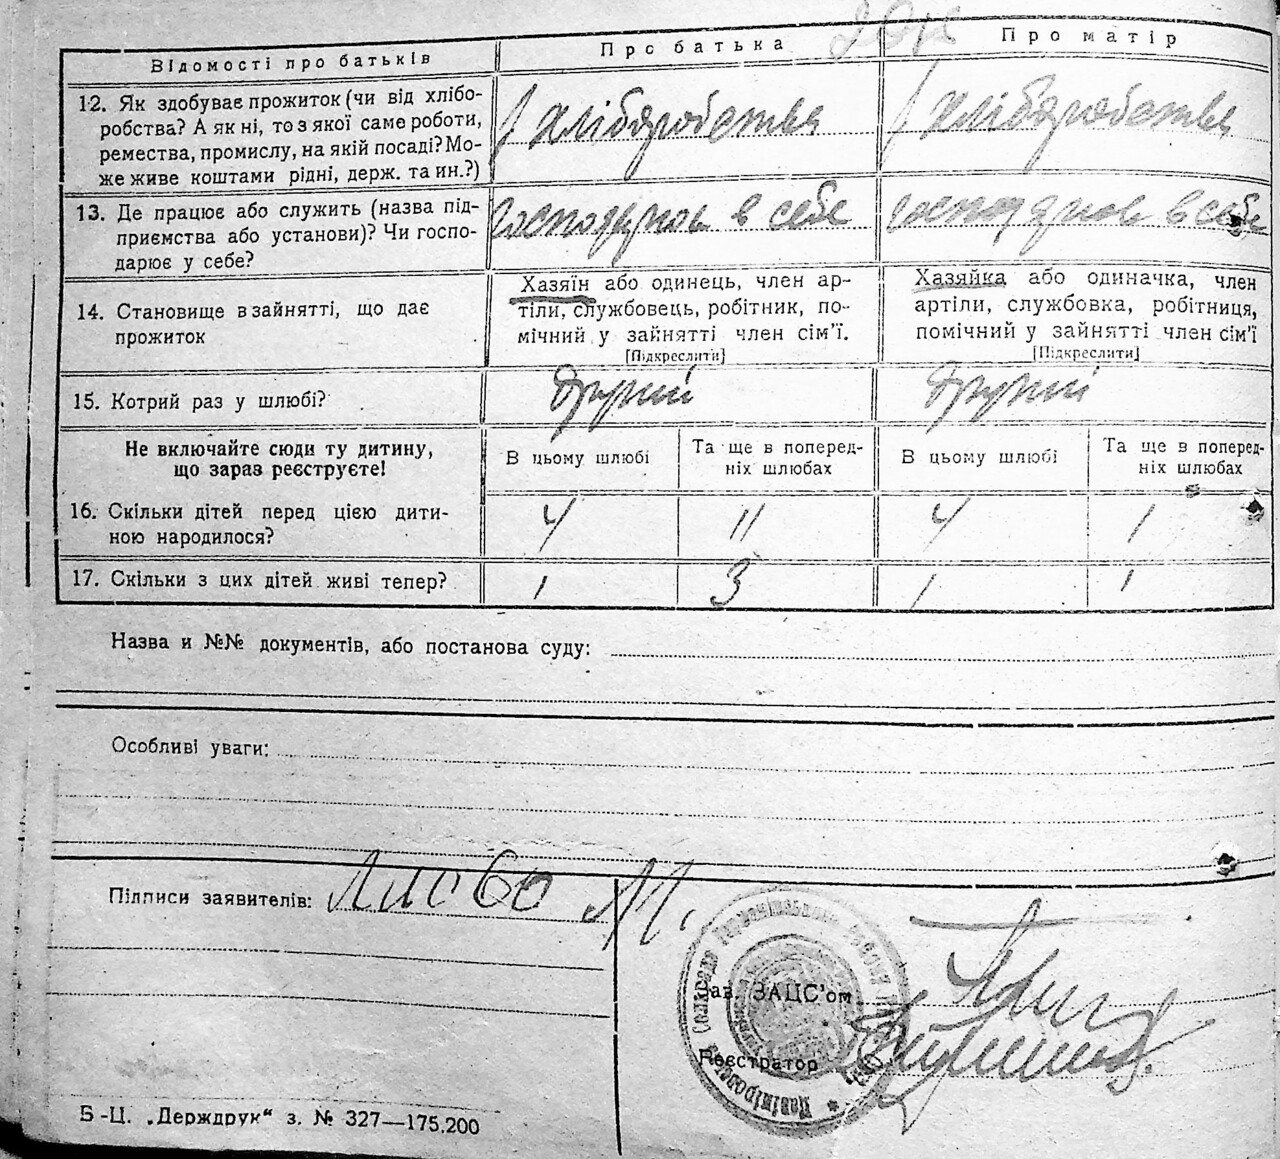 Відомості про батьків
Про батька
Про матір
12. Як здобуває прожиток (чи від хлібо-
робства? А як ні, то з якої саме роботи,
ремества, промислу, на якій посаді? Мо-
же живе коштами рідні, держ. та ин.?)
Хліборобства
Хліборобства
13. Де працює або служить (назва під-
приємства або установи)? Чи госпо-
дарює у себе?
в себе
в себе
14. Становище в зайнятті, що дає
прожиток
Хазяїн або одинець, член ар-
тіли, службовець, робітник, по-
мічний у зайнятті член сім'ї.
[Підкреслити]
Хазяйка або одиначка, член
артіли, службовка, робітниця,
помічний у зайнятті член сім'ї
[Підкреслити]
15. Котрий раз у шлюбі?
другий
другий
Не включайте сюди ту дитину,
що зараз реєструєте!
В цьому шлюбі
Та ще в поперед-
ніх шлюбах
В цьому шлюбі
Та ще в поперед-
ніх шлюбах
16. Скільки дітей перед цією дити-
ною народилося?
4
11
4
1
17. Скільки з цих дітей живі тепер?
1
3
1
1
Назва и №№ документів, або постанова суду:
Особливі уваги:
Підписи заявителів:
М.
Зав. ЗАЦС'ом
Реєстратор
Б-Ц. „Держдрук“ з. № 327—175.200